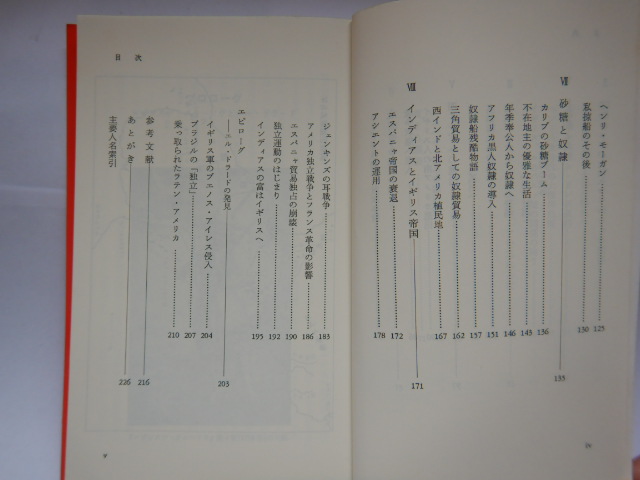 ヘンリ・モーガン……125
私掠船のその後……130
Ⅶ 砂糖と奴隷 133
カリブの砂糖ブーム……136
不在地主の優雅な生活……143
年季奉公人から奴隷へ……146
アフリカ黒人奴隷の導入……151
奴隷船残酷物語……157
三角貿易としての奴隷貿易……162
西インドと北アメリカ植民地……167
Ⅷ インディアスとイギリス帝国 171
エスパニャ帝国の衰退……172
アシエントの運用……178
iv
目次
ジェンキンズの耳戦争……183
アメリカ独立戦争とフランス革命の影響……186
エスパニャ貿易独占の崩壊……190
独立運動のはじまり……192
インディアスの富はイギリスへ……195
エピローグ
――エル・ドラードの発見 203
イギリス軍のブエノス・アイレス侵入……204
ブラジルの「独立」……207
乗っ取られたラテン・アメリカ……210
参考文献 216
あとがき 226
主要人名索引
v